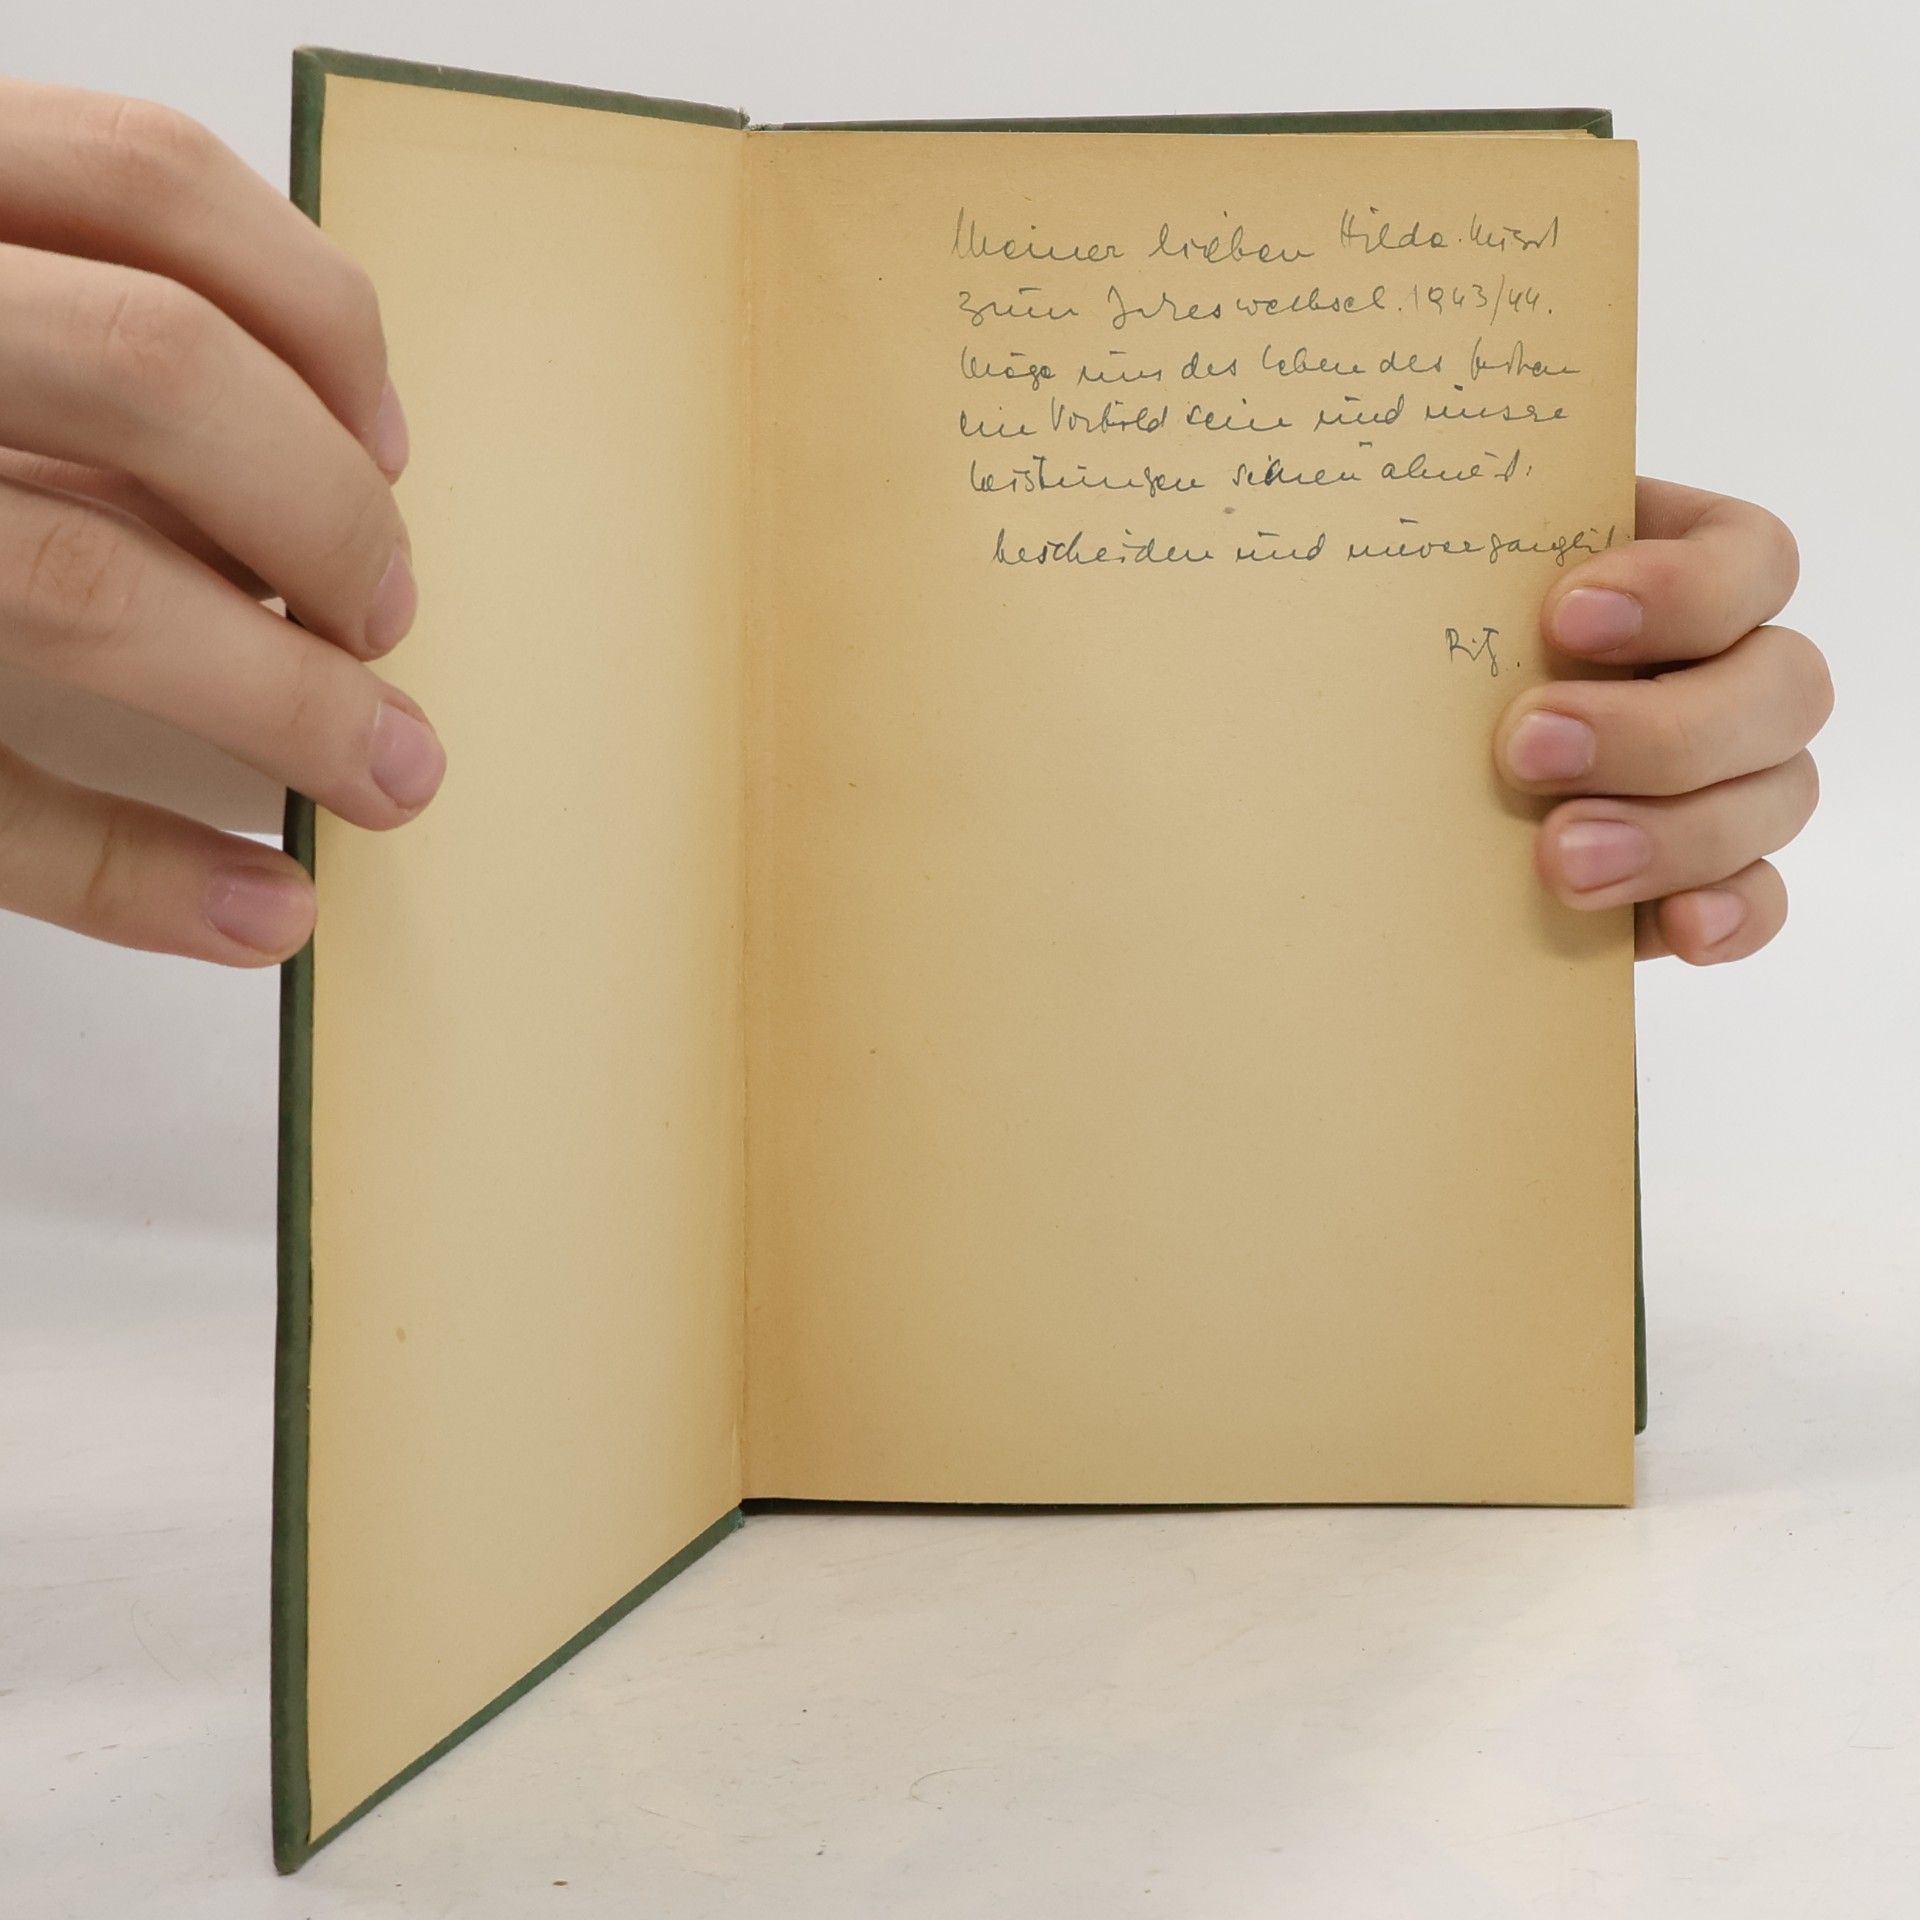 Meiner lieben Hilda
zum Jahreswechsel. 1943/44.
Möge uns das Leben des
ein Vorbild sein und unsere
Leistungen seinen
bescheiden und unvergänglich